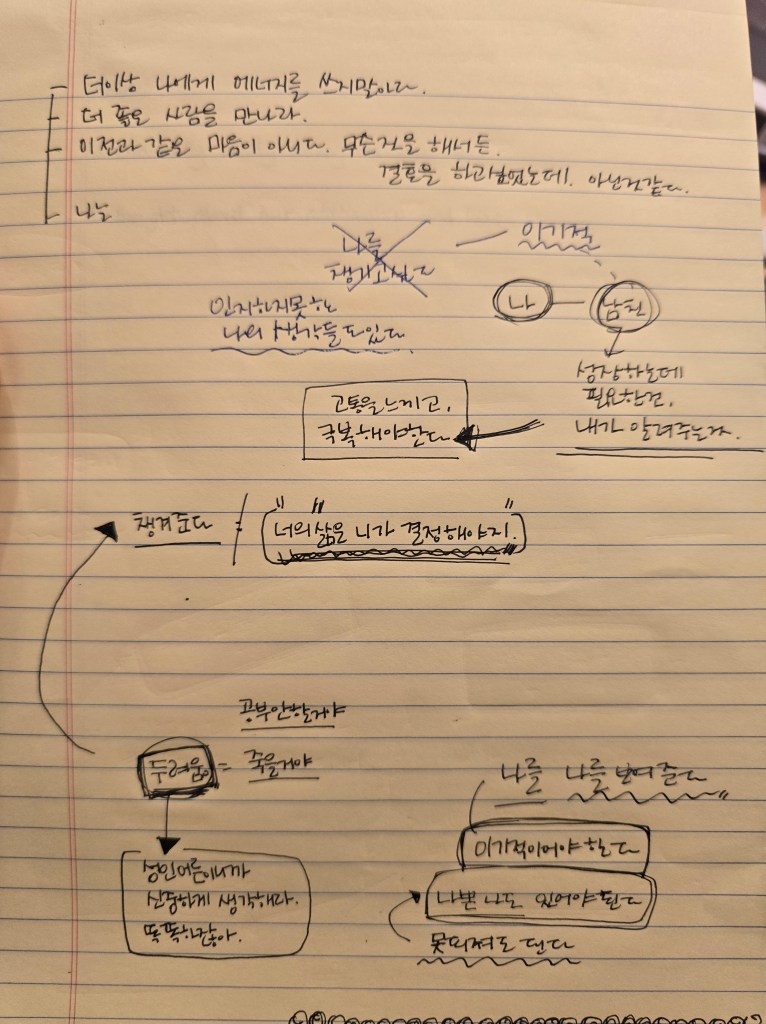 더이상 나에게 에너지를 쓰지말아라.
더 좋은 사람을 만나라.
이전과 같은 마음이 아니다. 무슨짓을 해서든.
결혼을 하려했는데. 아닌것같다.
나는
나를
챙기고싶다
이기적
인지하지못하는
나의 생각들도있다
나
남친
성장하는데
필요한건.
내가 알려주는가.
고통을느끼고,
극복해야한다
챙겨준다 ≠ "너의 "삶은 니가 결정해야지."
공부안할거야
두려움 = 죽을거야
성인어른이니까
신중하게 생각해라.
똑똑하잖아.
나를 나를 보여준다"
이기적이어야 한다
나쁜 나도 있어야 된다
못되져도 된다